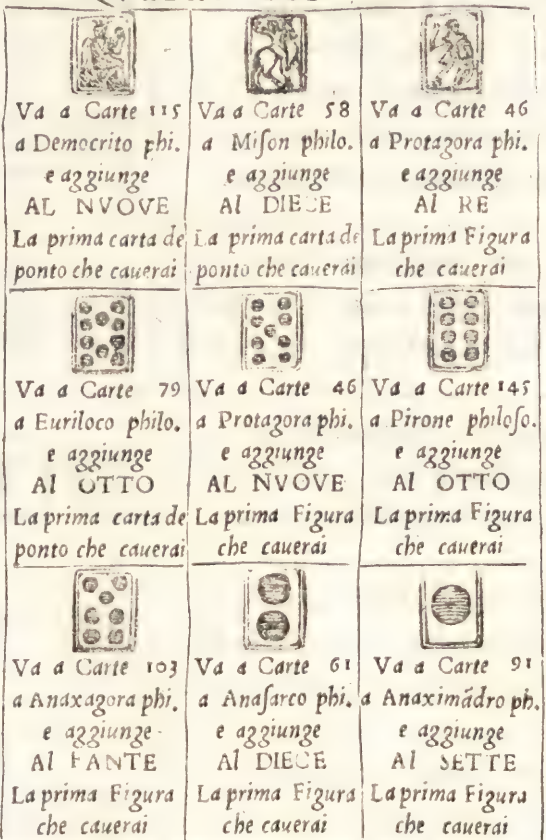 Va a Carte 115
a Democrito phi.
e aggiunge
AL NVOVE
La prima carta de
ponto che cauerai
Va a Carte 58
a Miſon philo.
e aggiunge
Al DIECE
La prima carta de
ponto che cauerai
Va a Carte 46
a Protagora phi.
e aggiunge
Al RE
La prima Figura
che cauerai
Va a Carte 79
a Euriloco philo.
e aggiunge
Al OTTO
La prima carta de
ponto che cauerai
Va a Carte 46
a Protagora phi.
e aggiunge
AL NVOVE
La prima Figura
che cauerai
Va a Carte 145
a Pirone philoſo.
e aggiunge
Al OTTO
La prima Figura
che cauerai
Va a Carte 103
a Anaxagora phi.
e aggiunge
Al FANTE
La prima Figura
che cauerai
Va a Carte 61
a Anaſarco phi.
e aggiunge
Al DIECE
La prima Figura
che cauerai
Va a Carte 91
a Anaximãdro ph.
e aggiunge
Al SETTE
La prima Figura
che cauerai